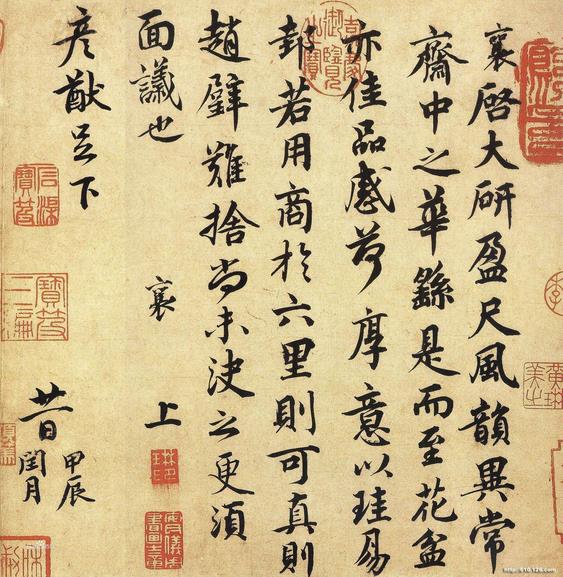 襄啓大研盈尺風韻異常
齋中之華繇是而至花盆
亦佳品感荷厚意以珪易
邽若用商於六里則可真則
趙璧難捨尚未決之更須
面議也
襄 上
彦猷足下
廿一日
甲辰
閏月
http://610.126.com